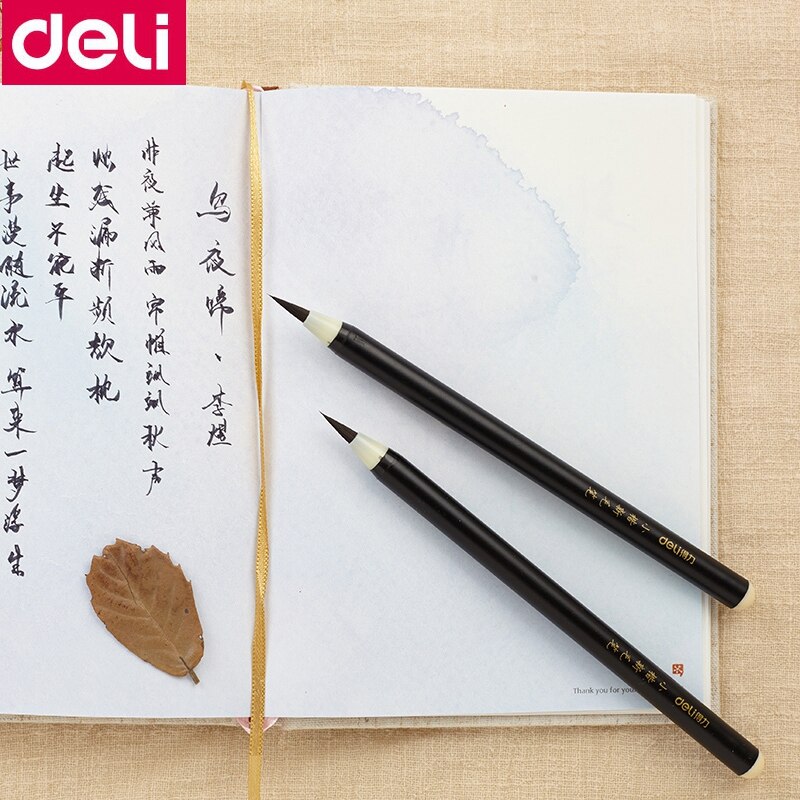 deli
乌夜啼、李煜
昨夜兼风雨 帘帷飒飒秋声
烛残漏断频欹枕
起坐不能平
世事漫随流水 算来一梦浮生
小楷新毛笔 deli得力
小楷新毛笔 deli得力
Thank you for